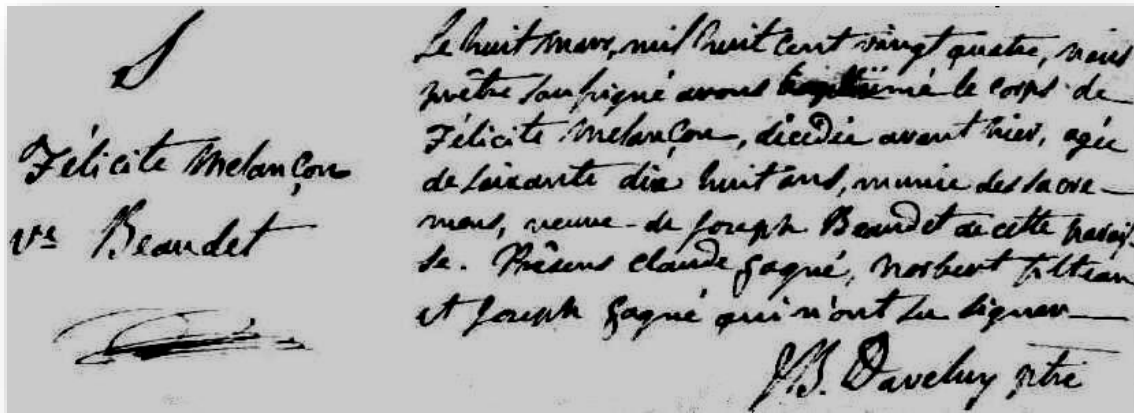 S
Félicité Melançon
Ve Beaudet
Le huit mars, mil huit cent vingt quatre, nous
prêtre soussigné avons inhumé le corps de
Félicité Melançon, décédée avant hier, agée
de soixante dix huit ans, munie des sacre-
mens, veuve de Joseph Beaudet de cette parois-
se. Présens Claude Gagné, Norbert Filteau
et Joseph Gagné qui n'ont su signer
J.B. Daveluy ptre